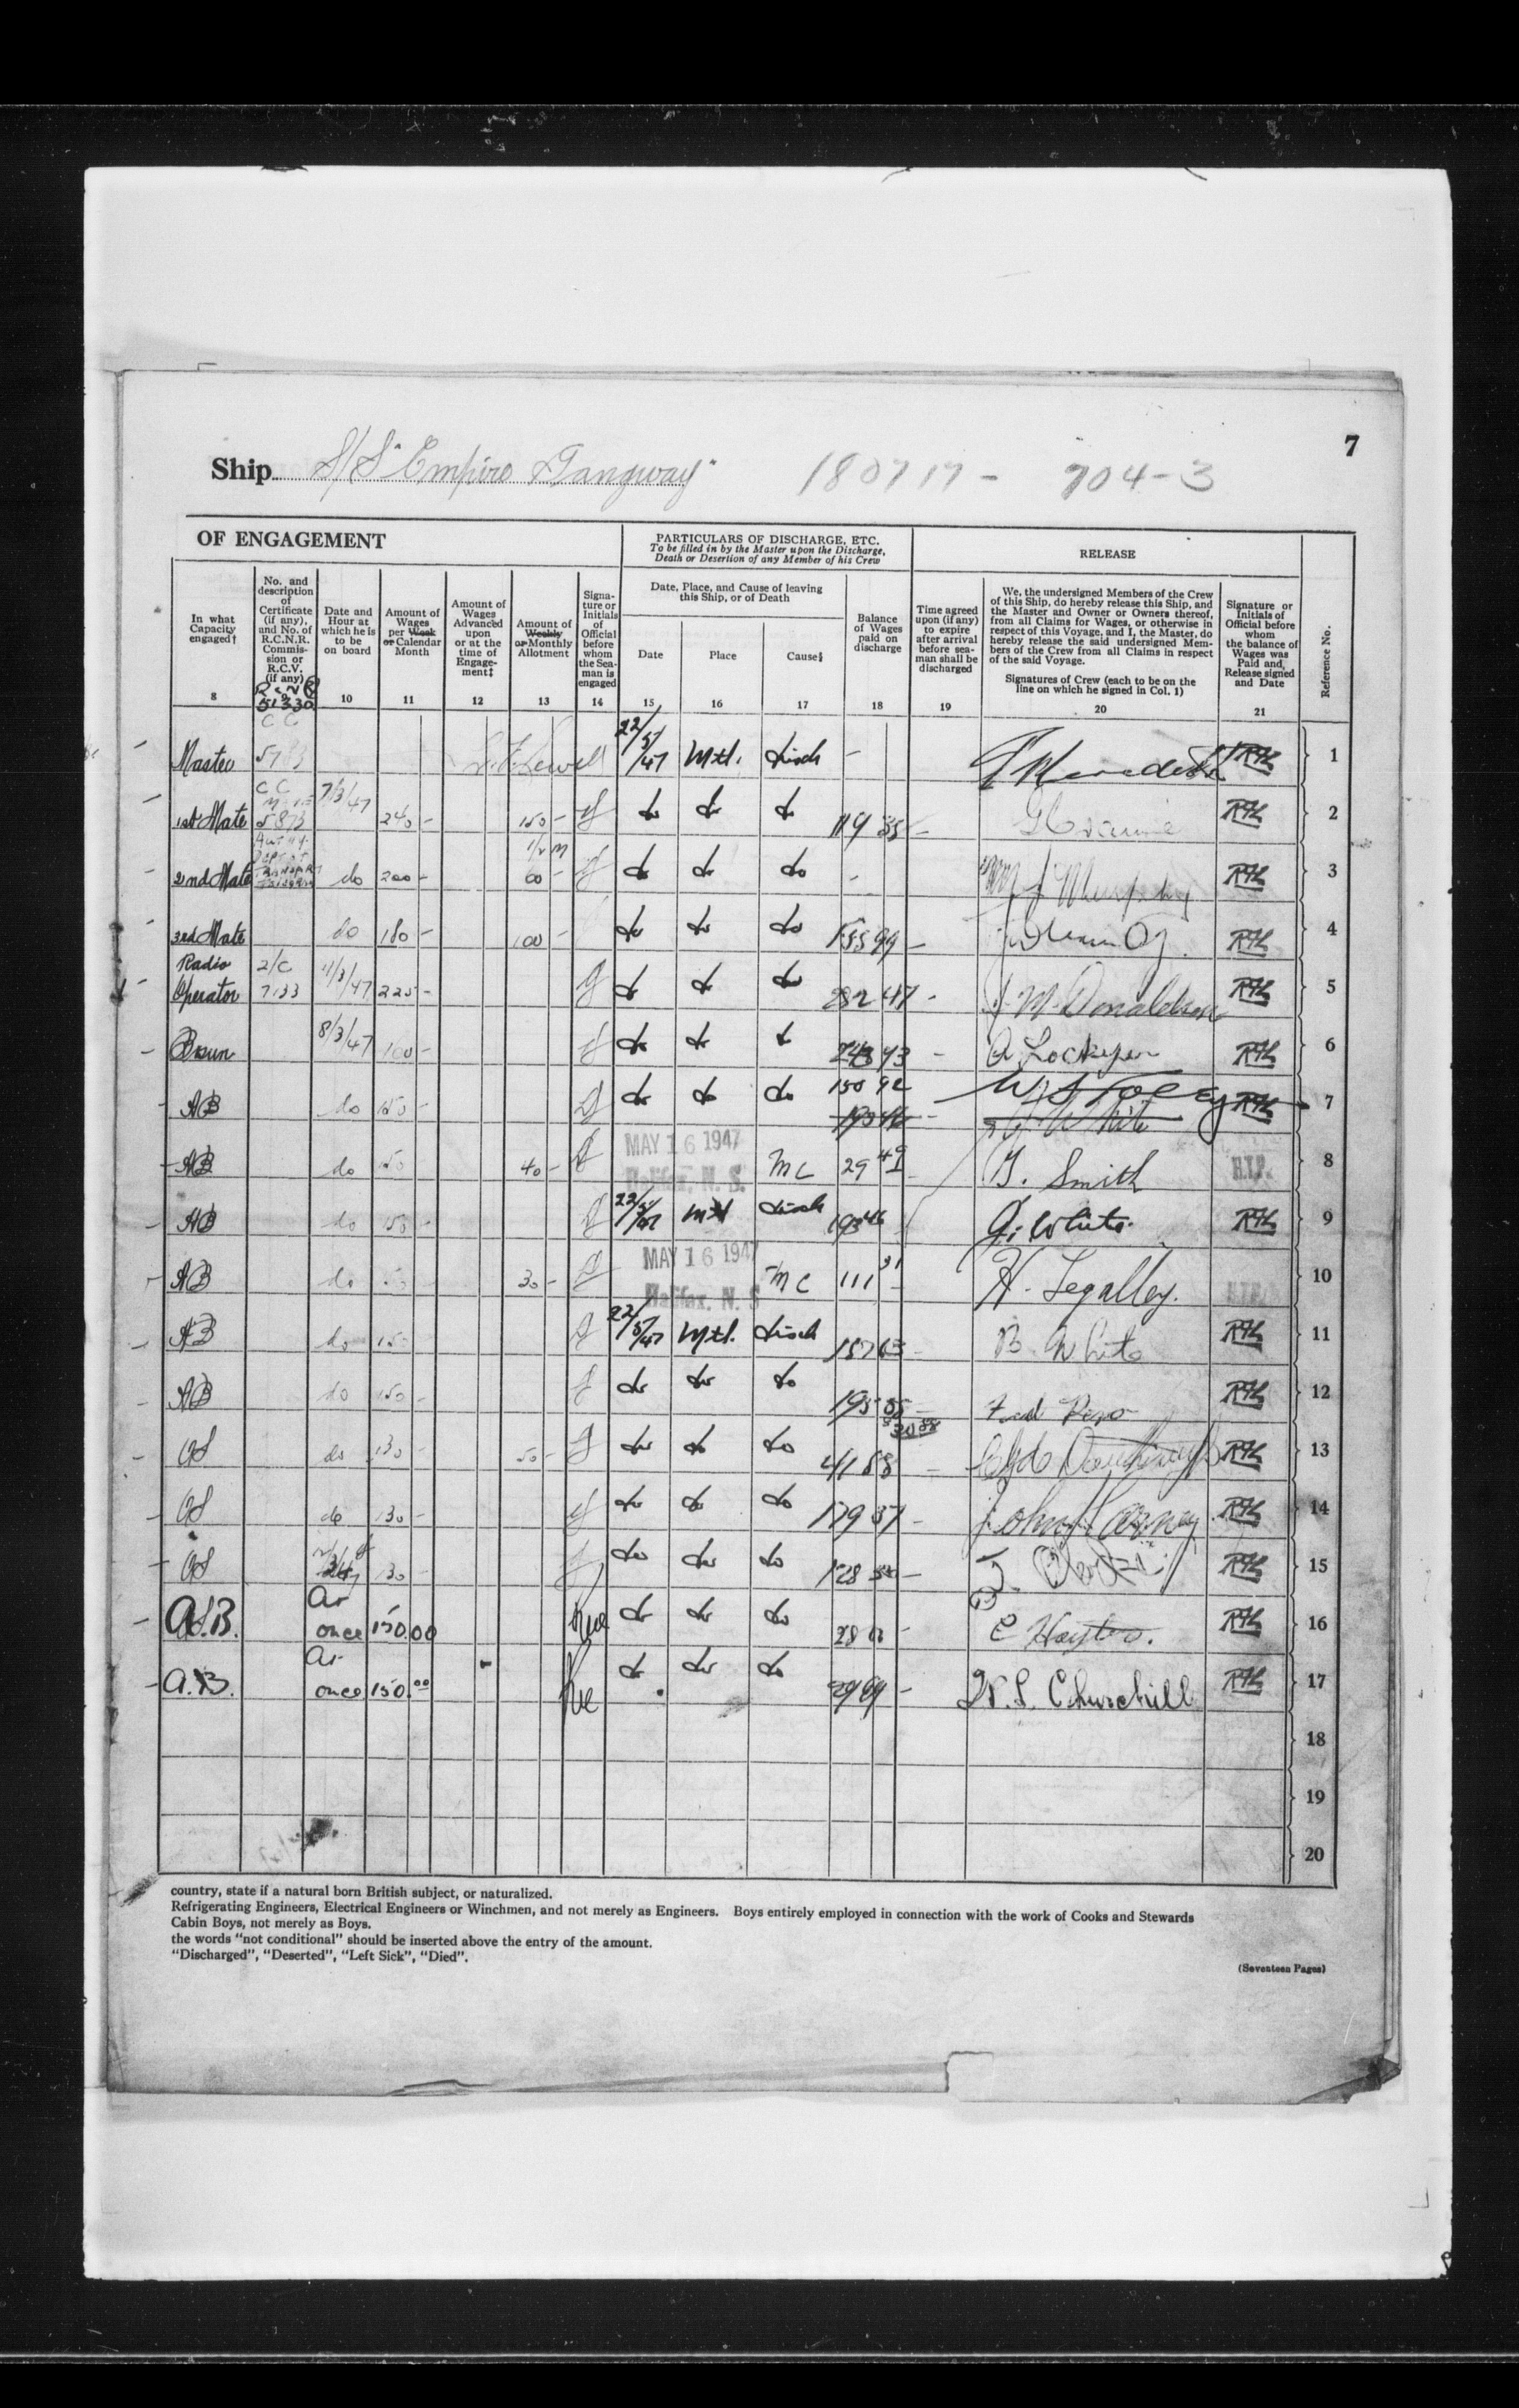 7
Ship S/S "Empire Tangway" 180717 - 704-3
OF ENGAGEMENT
PARTICULARS OF DISCHARGE, ETC.
To be filled in by the Master upon the Discharge,
Death or Desertion of any Member of his Crew
RELEASE
In what
Capacity
engaged†
8
No. and
description
of
Certificate
(if any),
and No. of
R.C.N.R.
Commis-
sion or
R.C.V.
(if any)
9
51330
Date and
Hour at
which he is
to be
on board
10
Amount of
Wages
per Week
or Calendar
Month
11
Amount of
Wages
Advanced
upon
or at the
time of
Engage-
ment‡
12
Amount of
Weekly
or Monthly
Allotment
13
Signa-
ture or
Initials
of
Official
before
whom
the Sea-
man is
engaged
14
Date, Place, and Cause of leaving
this Ship, or of Death
Date
15
Place
16
Cause§
17
Balance
of Wages
paid on
discharge
18
Time agreed
upon (if any)
to expire
after arrival
before sea-
man shall be
discharged
19
We, the undersigned Members of the Crew
of this Ship, do hereby release this Ship, and
the Master and Owner or Owners thereof,
from all Claims for Wages, or otherwise in
respect of this Voyage, and I, the Master, do
hereby release the said undersigned Mem-
bers of the Crew from all Claims in respect
of the said Voyage.
Signatures of Crew (each to be on the
line on which he signed in Col. 1)
20
Signature or
Initials of
Official before
whom
the balance of
Wages was
Paid and,
Release signed
and Date
21
Reference No.
Master CC 5783 22/5/47 Mtl. Disch - 1
1st Mate CC 5873 7/3/47 240 - 150 - do do do 119 - 2
2nd Mate do 200 - 60 - do do do - 3
3rd Mate do 180 - 100 - do do do 155 99 - 4
Radio
Operator 2/C 7133 11/3/47 225 - do do do 282 47 - J. M. Donaldson 5
Bosun 8/3/47 160 - do do do 243 93 - 6
AB do 150 - do do do 150 92 193 46 - W S Foley W White 7
AB do 150 40 - MAY 16 1947 Halifax, N. S. MC 29 49 G. Smith H.I.P. 8
AB do 150 - 22/5/47 Mtl Disch 193 46 G. White 9
AB do 30 - MAY 16 1947 Halifax, N. S MC 111 31 H. Legalley. 10
AB do 150 - 22/5/47 Mtl. Disch 187 63 - B. White 11
AB do 150 - do do do 195 - 12
OS do 130 - 50 - do do do 41 88 - 13
OS do 130 - do do do 179 37 - 14
OS 130 - do do do 128 - 15
A.B. At
once 150.00 do do do 28 - E Hayter. 16
A.B. At
once 150.00 do do do 29 69 - W. S. Churchill 17
18
19
20
country, state if a natural born British subject, or naturalized.
Refrigerating Engineers, Electrical Engineers or Winchmen, and not merely as Engineers. Boys entirely employed in connection with the work of Cooks and Stewards
Cabin Boys, not merely as Boys.
the words "not conditional" should be inserted above the entry of the amount.
"Discharged", "Deserted", "Left Sick", "Died".
(Seventeen Pages)